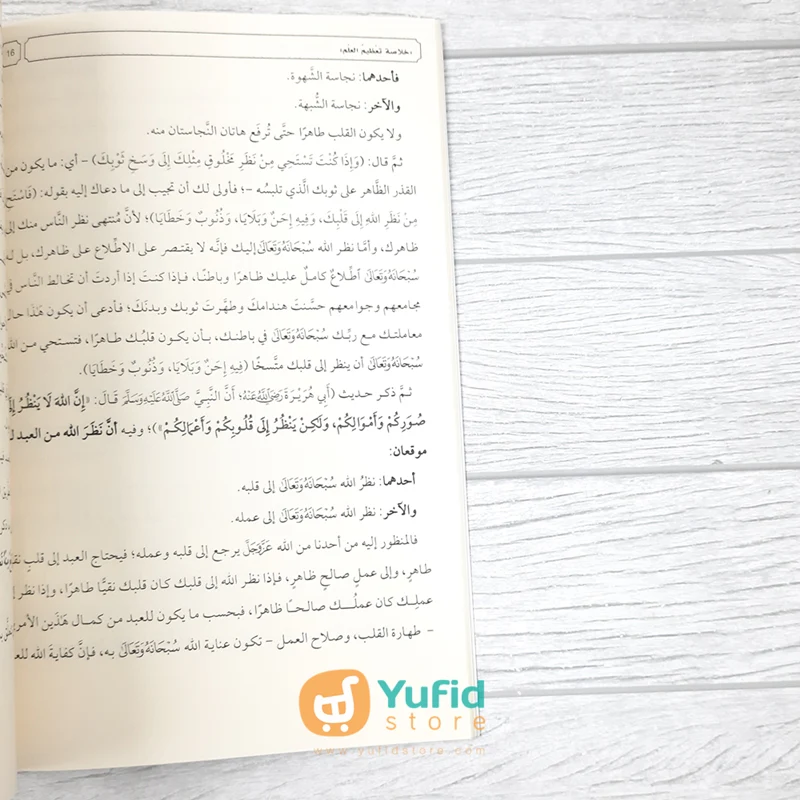 16
خلاصة تعظيم العلم
فأحدهما: نجاسة الشَّهوة.
والآخر: نجاسة الشُّبهة.
ولا يكون القلب طاهرًا حتَّى تُرفَع هاتان النَّجاستان منه.
ثمَّ قال: (وَإِذَا كُنْتَ تَسْتَحِي مِنْ نَظَرِ مَخْلُوقٍ مِثْلِكَ إِلَى وَسَخِ ثَوْبِكَ) – أي: ما يكون من
القذر الظَّاهر على ثوبك الَّذي تلبسُه –؛ فأولى لك أن تجيب إلى ما دعاك إليه بقوله: (فَاسْتَحِ
مِنْ نَظَرِ اللهِ إِلَى قَلْبِكَ، وَفِيهِ إِحَنٌ وَبَلَايَا، وَذُنُوبٌ وَخَطَايَا)؛ لأنَّ مُنتهى نظر النَّاس منك إلى
ظاهرك، وأمَّا نظر الله سُبْحَانَهُ وَتَعَالَى إليك فإنَّه لا يقتصر على الاطِّلاع على ظاهرك، بل له
سُبْحَانَهُ وَتَعَالَى اطِّلاعٌ كاملٌ عليك ظاهرًا وباطنًا، فإذا كنتَ إذا أردتَ أن تخالط النَّاس في
مجامعهم وجوامعهم حسَّنتَ هندامكَ وطهَّرتَ ثوبك وبدنَكَ؛ فأدعى أن يكون هَذَا حال
معاملتك مع ربِّك سُبْحَانَهُ وَتَعَالَى في باطنك، بأن يكون قلبُك طاهرًا، فتستحي من الله
سُبْحَانَهُ وَتَعَالَى أن ينظر إلى قلبك متَّسخًا (فِيهِ إِحَنٌ وَبَلَايَا، وَذُنُوبٌ وَخَطَايَا).
ثمَّ ذكر حديث (أَبِي هُرَيْرَةَ رَضِيَ اللَّهُ عَنْهُ؛ أَنَّ النَّبِيَّ صَلَّى اللَّهُ عَلَيْهِ وَسَلَّمَ قَالَ: «إِنَّ اللهَ لَا يَنْظُرُ إِلَى
صُوَرِكُمْ وَأَمْوَالِكُمْ، وَلَكِنْ يَنْظُرُ إِلَى قُلُوبِكُمْ وَأَعْمَالِكُمْ»)؛ وفيه أنَّ نَظَرَ الله من العبد
موقعان:
أحدهما: نظرُ الله سُبْحَانَهُ وَتَعَالَى إلى قلبه.
والآخر: نظر الله سُبْحَانَهُ وَتَعَالَى إلى عمله.
فالمنظور إليه من أحدنا من الله عَزَّ وَجَلَّ يرجع إلى قلبه وعمله؛ فيحتاج العبد إلى قلبٍ
طاهرٍ، وإلى عملٍ صالحٍ ظاهرٍ، فإذا نظر الله إلى قلبك كان قلبك نقيًّا طاهرًا، وإذا نظر
عملِك كان عملُك صالحًا ظاهرًا، فبحسب ما يكون للعبد من كمال هَذَين
– طهارة القلب، وصلاح العمل – تكون عناية الله سُبْحَانَهُ وَتَعَالَى به، فإنَّ كفايةَ الله
Yufid
store
www.yufidstore.com